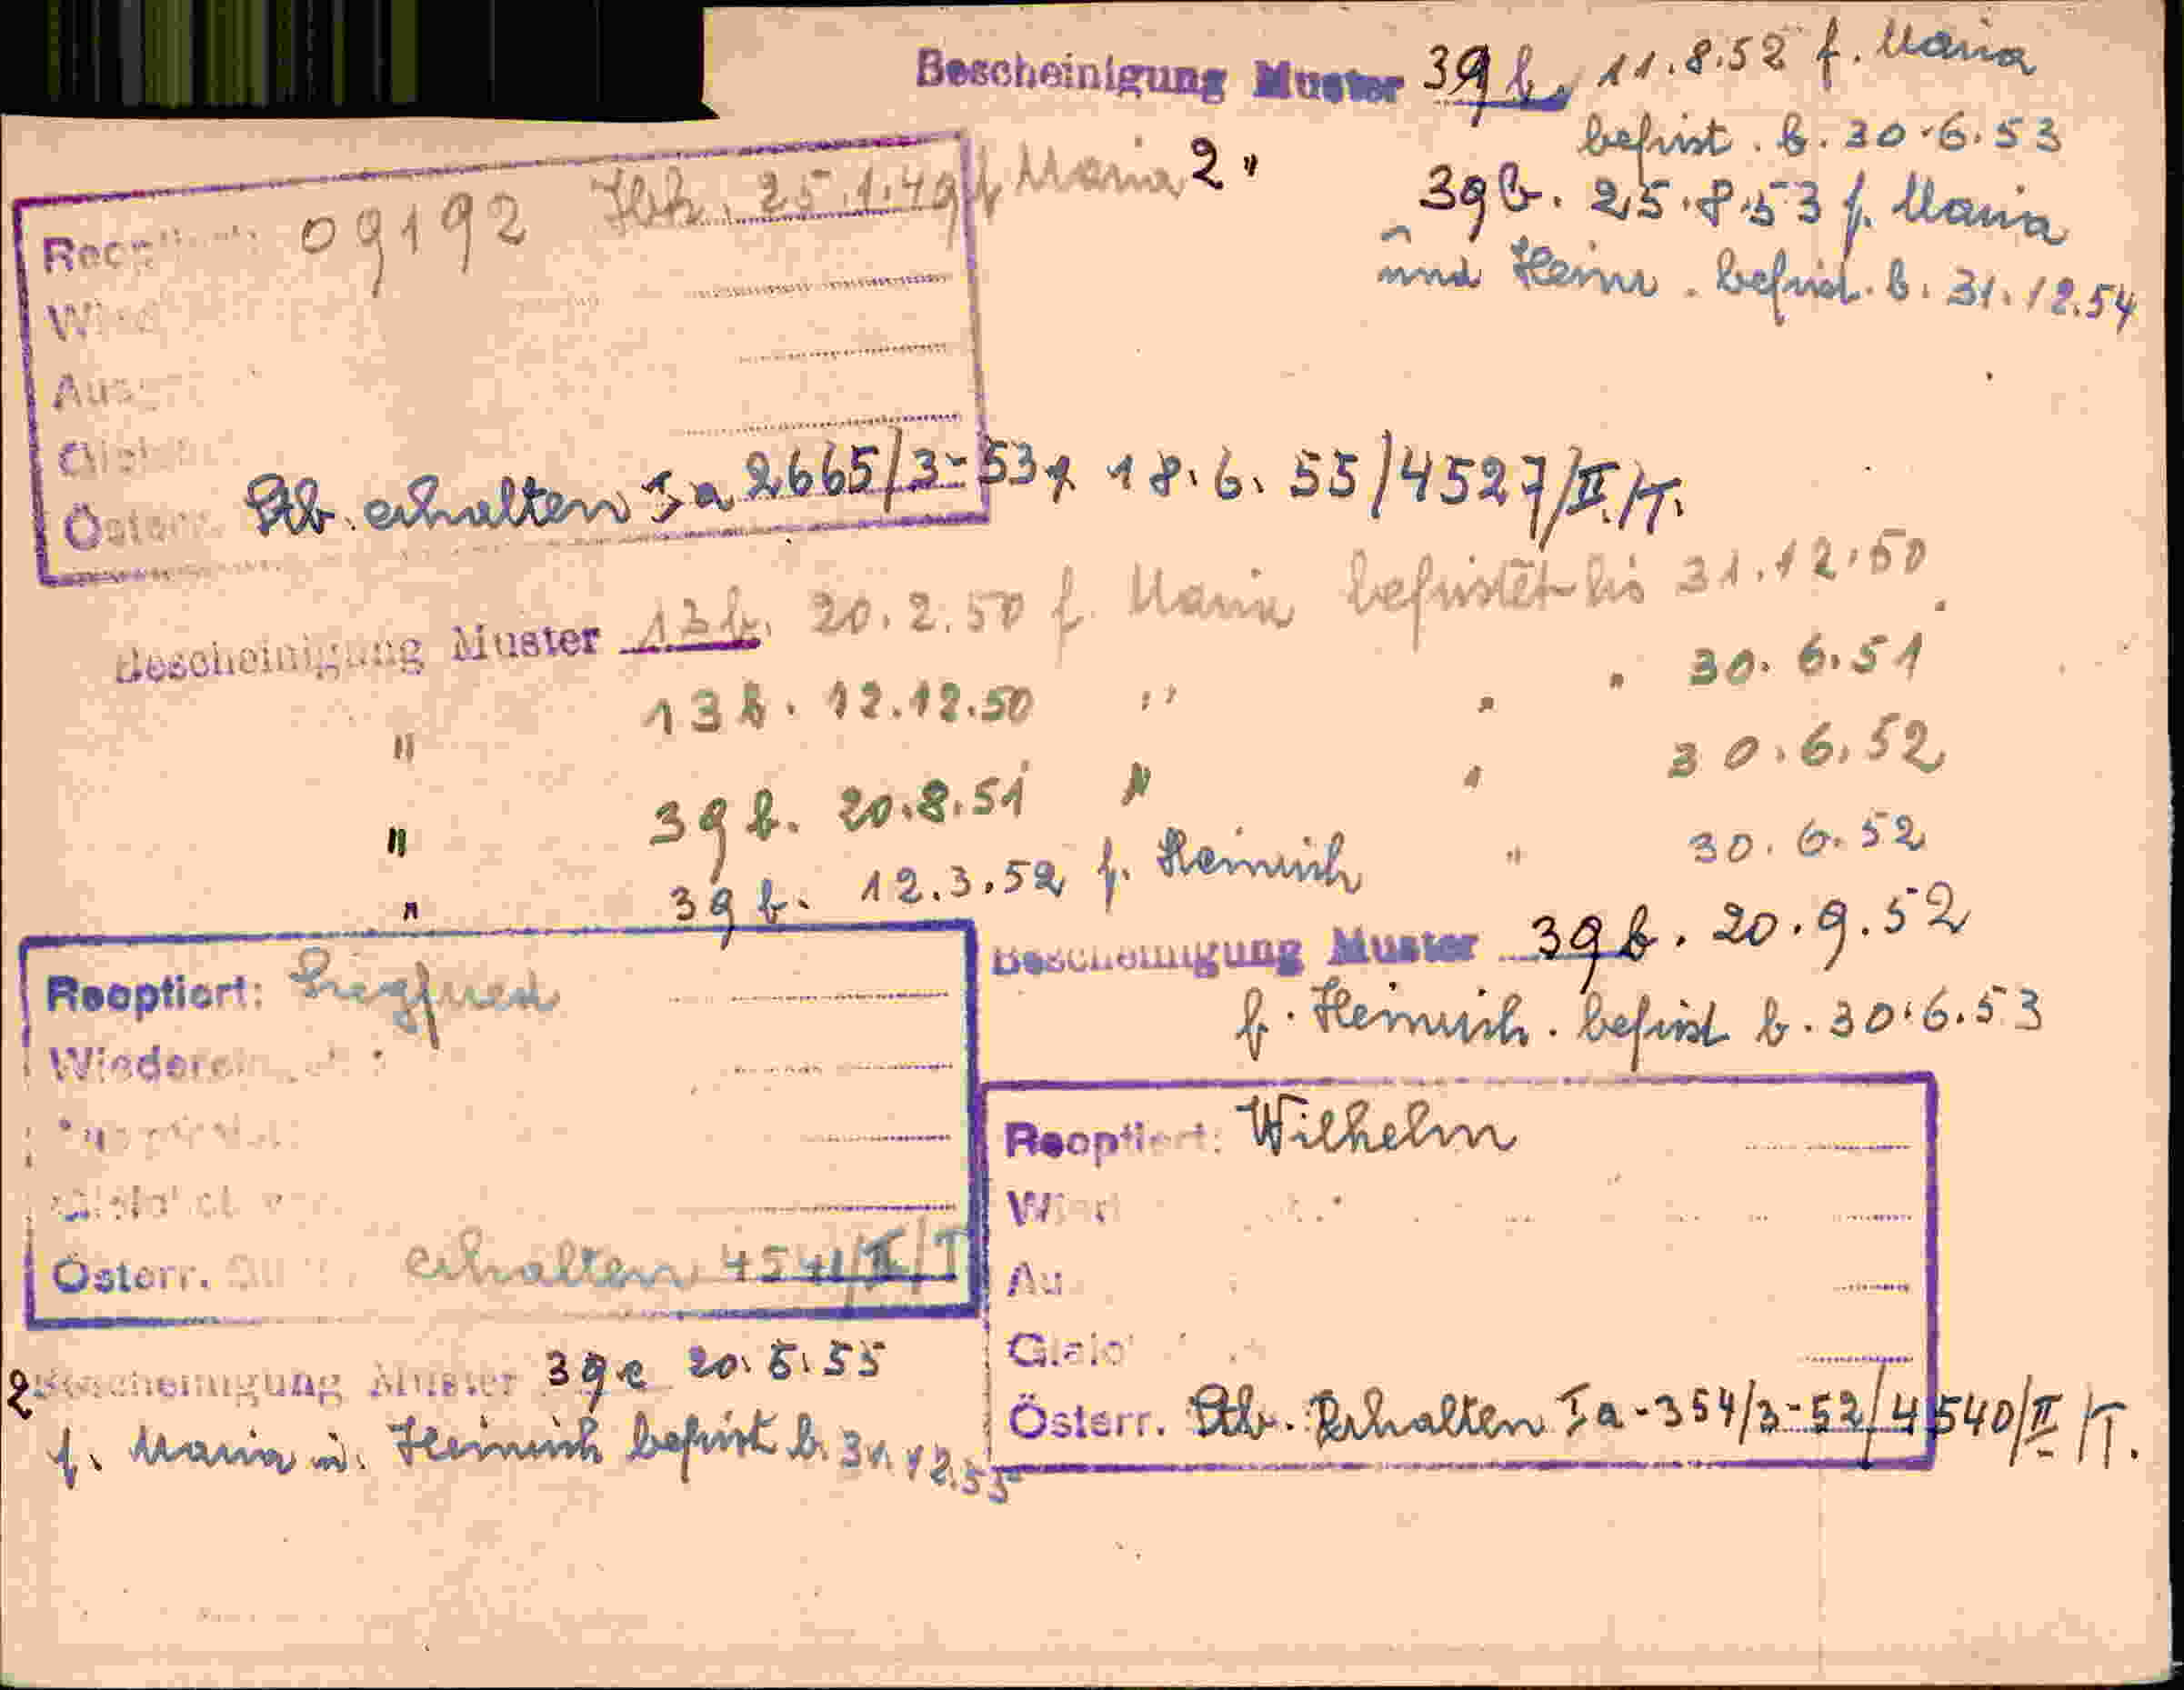 Bescheinigung Muster 39 b. 11.8.52 f. Maria
befrist. b. 30.6.53
2 " 39 b. 25.8.53 f. Maria
und Heinr. befrist. b. 31.12.54
09192 25.1.49 f Maria
Stb. erhalten Ia 2665/3-53 18.6.55/4527/II/T.
Bescheinigung Muster 13 b. 20.2.50 f. Maria befristet bis 31.12.50
" 13 b. 12.12.50 " " " 30.6.51
" 39 b. 20.8.51 " " 30.6.52
" 39 b. 12.3.52 f. Heinrich " 30.6.52
Reoptiert: Siegfried
Österr. erhalten 4541/II/T
Bescheinigung Muster 39 b. 20.9.52
f. Heinrich. befrist b. 30.6.53
Reoptiert: Wilhelm
Österr. Stb. Erhalten Ia-354/3-52/4540/II/T.
2 Bescheinigung Muster 39 e 20.5.55
f. Maria u. Heinrich befrist b. 31.12.55